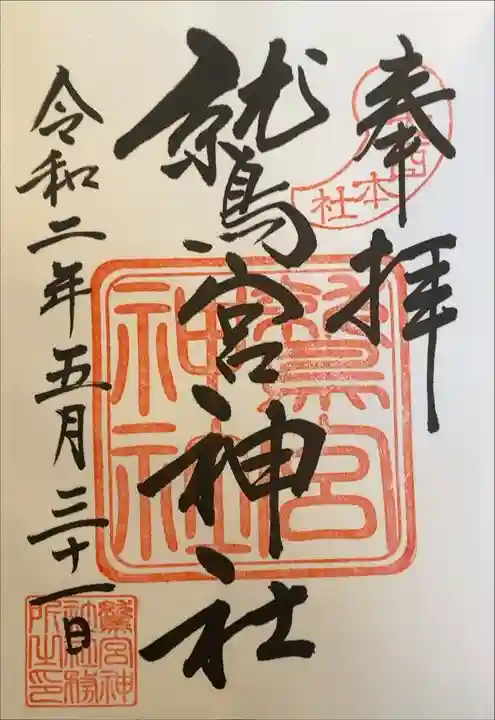 奉拝
鷲宮神社
令和二年五月三十一日
本社
鷲宮
神社
鷲宮神
社社務
所之印